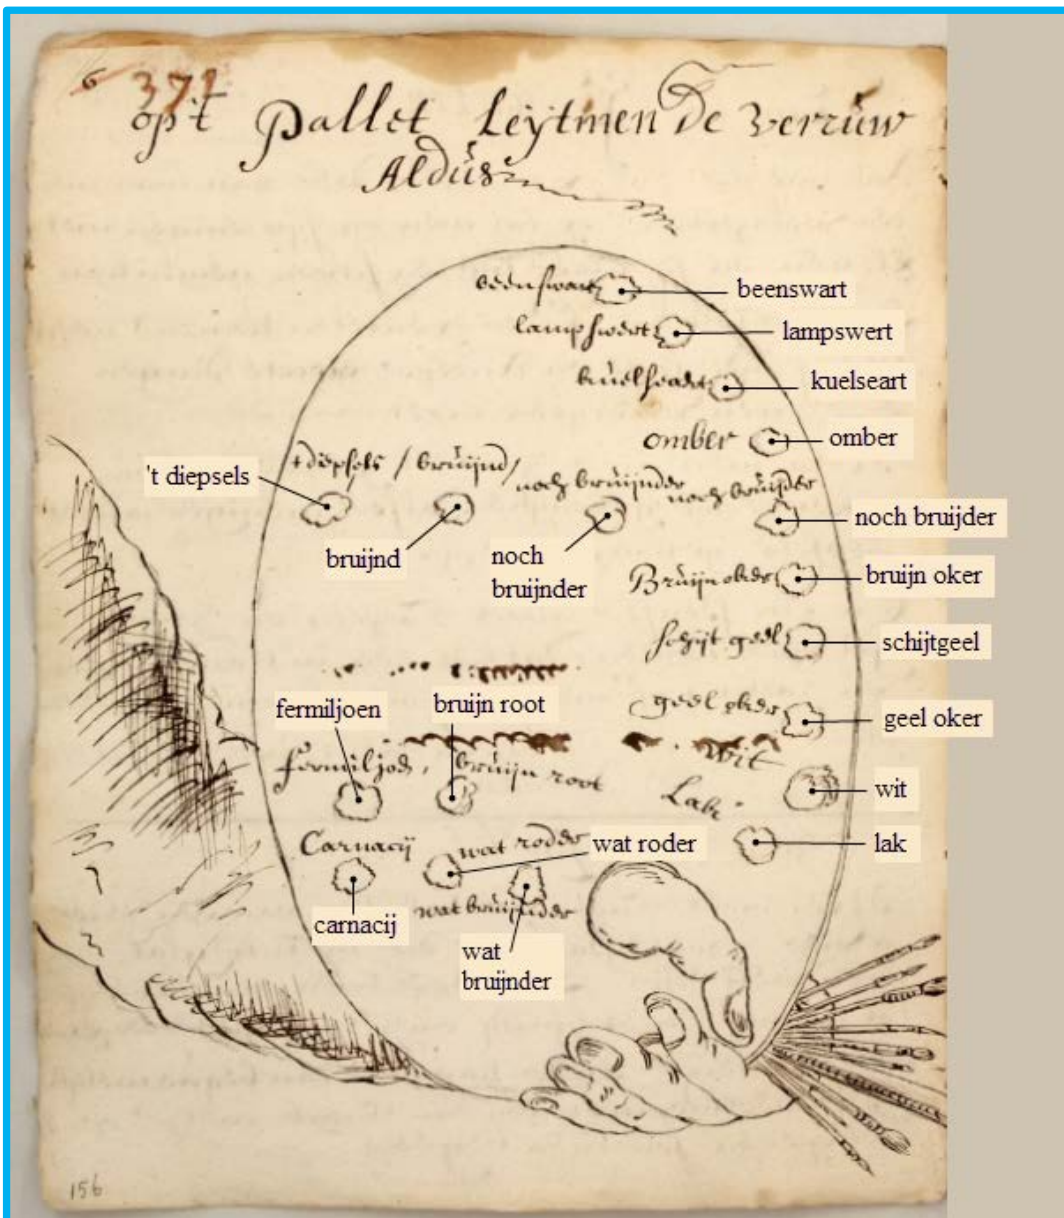 6 371
op't Pallet Leijtmen De verruw
Aldus
beenswart
beenswart
lampswert
lampswert
kuelseart
kuelseart
omber
omber
't diepsels / bruijnd /
noch bruijnder
noch bruijder
't diepsels
bruijnd
noch
bruijnder
noch bruijder
Bruijn oker
bruijn oker
schijt geel
schijtgeel
geel oker
geel oker
fermiljoen
bruijn root
wit
wit
bruijn root
Lak
lak
Carnacij
wat roder
wat roder
carnacij
wat bruijnder
wat
bruijnder
156